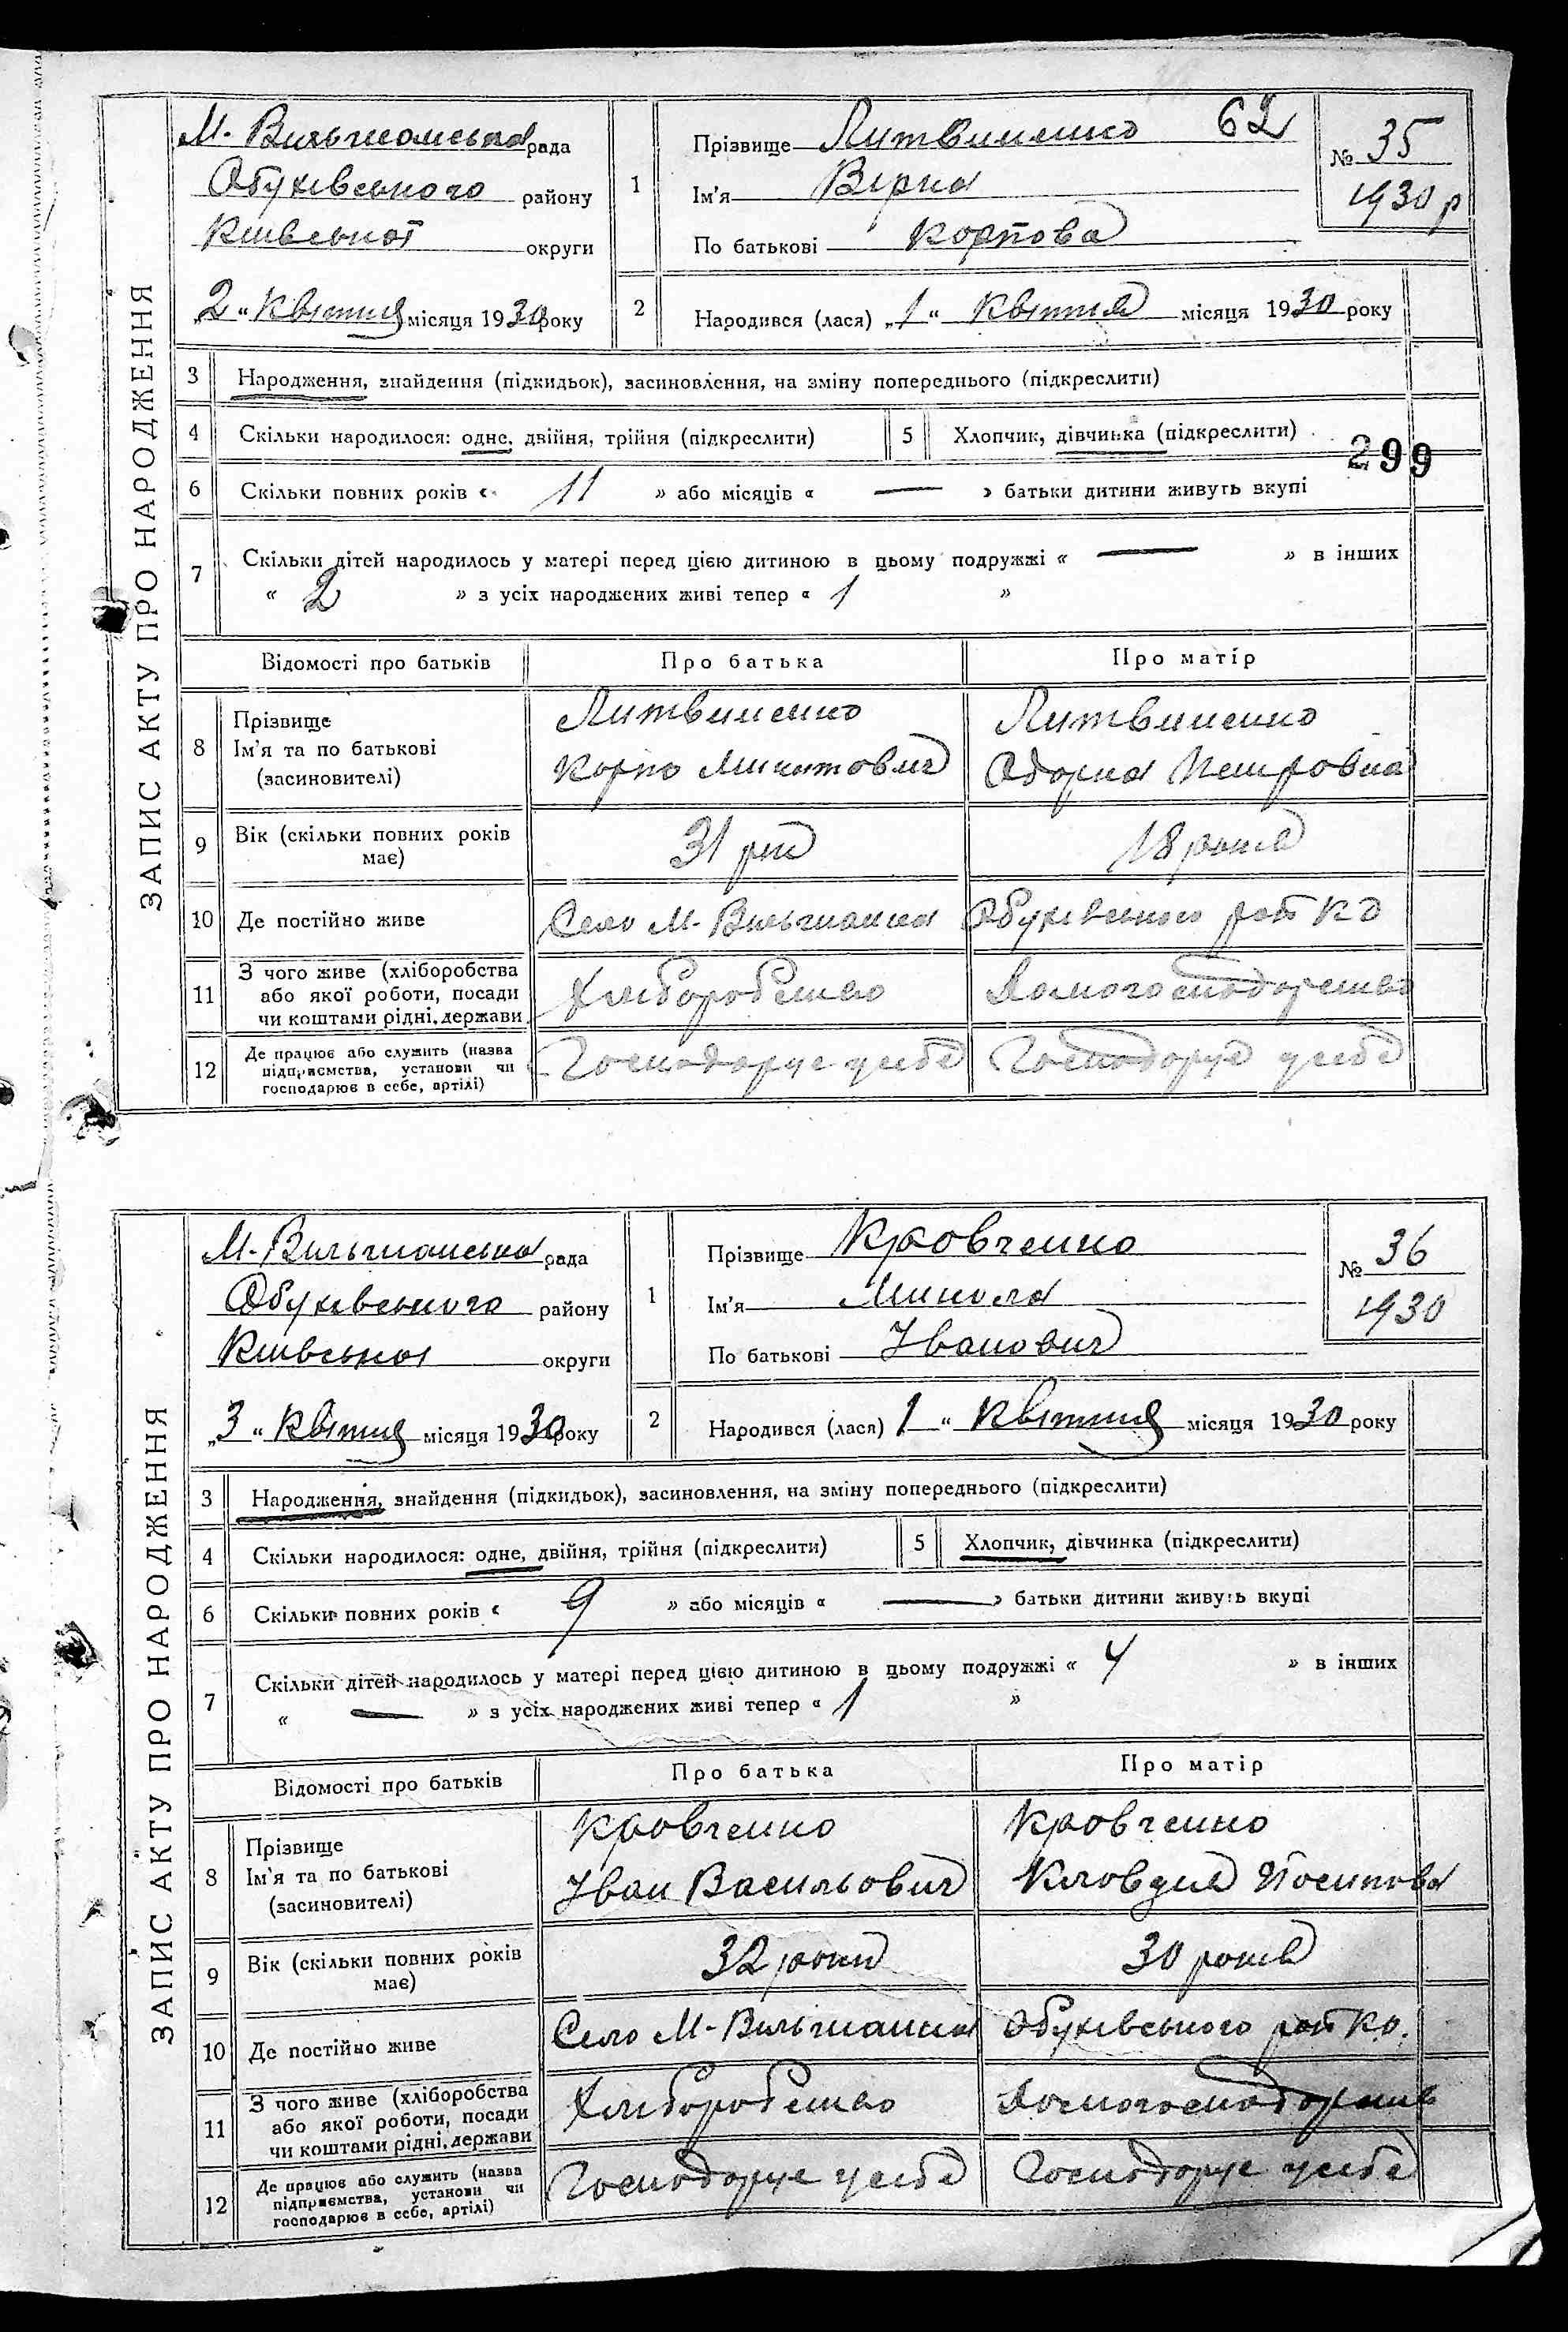 ЗАПИС АКТУ ПРО НАРОДЖЕННЯ
М. Вильшанська рада
Обухівського району
Київської округи
„2“ Квітня місяця 1930 року
1
Прізвище Литвиненко 62
Ім'я Вірка
По батькові Корпова
№ 35
1930 р
2
Народився (лася) „1“ Квітня місяця 1930 року
3 Народження, знайдення (підкидьок), засиновлення, на зміну попереднього (підкреслити)
4 Скільки народилося: одне, двійня, трійня (підкреслити) 5 Хлопчик, дівчинка (підкреслити)
299
6 Скільки повних років « 11 » або місяців « — » батьки дитини живуть вкупі
7 Скільки дітей народилось у матері перед цією дитиною в цьому подружжі « — » в інших
« 2 » з усіх народжених живі тепер « 1 »
Відомості про батьків Про батька Про матір
8 Прізвище
Ім'я та по батькові
(засиновителі)
Литвиненко
Корпо Микитович
Литвиненко
Одарка Петровна
9 Вік (скільки повних років
має)
31 рік
18 років
10 Де постійно живе Село М-Вильшанка Обухівського рай К О
11 З чого живе (хліборобства
або якої роботи, посади
чи коштами рідні, держави
Хліборобство
Домогосподорство
12 Де працює або служить (назва
підприємства, установи чи
господарює в себе, артілі)
Господорує у себе
Господорує у себе
ЗАПИС АКТУ ПРО НАРОДЖЕННЯ
М-Вильшанська рада
Обухівського району
Київська округи
„3“ Квітня місяця 1930 року
1
Прізвище Кровченко
Ім'я Микола
По батькові Іванович
№ 36
1930
2
Народився (лася) 1 “ Квітня місяця 1930 року
3 Народження, знайдення (підкидьок), засиновлення, на зміну попереднього (підкреслити)
4 Скільки народилося: одне, двійня, трійня (підкреслити) 5 Хлопчик, дівчинка (підкреслити)
6 Скільки повних років « 9 » або місяців « — » батьки дитини живуть вкупі
7 Скільки дітей народилось у матері перед цією дитиною в цьому подружжі « 4 » в інших
« — » з усіх народжених живі тепер « 1 »
Відомості про батьків Про батька Про матір
8 Прізвище
Ім'я та по батькові
(засиновителі)
Кровченко
Іван Васильович
Кровченко
Кловдія Йосипова
9 Вік (скільки повних років
має)
32 роки
30 років
10 Де постійно живе Село М-Вильшанка Обухівського рай К О.
11 З чого живе (хліборобства
або якої роботи, посади
чи коштами рідні, держави
Хліборобство
Домогосподорство
12 Де працює або служить (назва
підприємства, установи чи
господарює в себе, артілі)
Господорує у себе
Господорує у себе